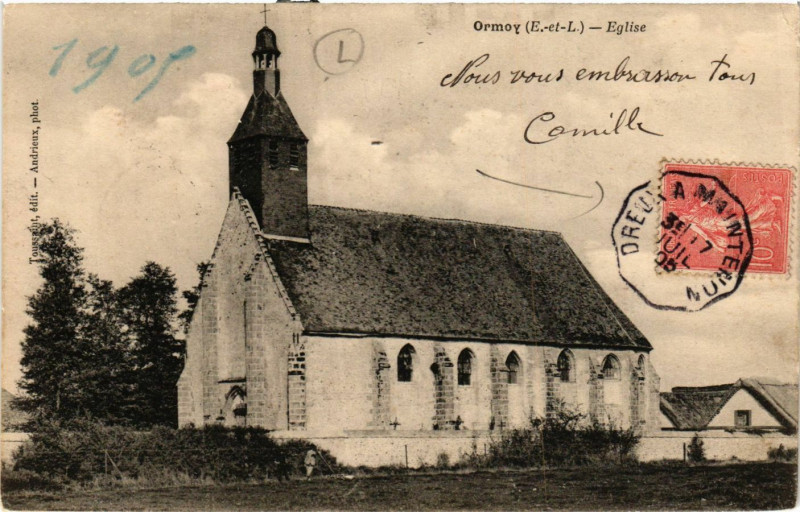 Ormoy (E.-et-L.) — Eglise
1905
L
Nous vous embrassons tous
Camille
Toussaint, édit. — Andrieux, phot.
DREUX A MAINTENON
17
JUIL
05
10